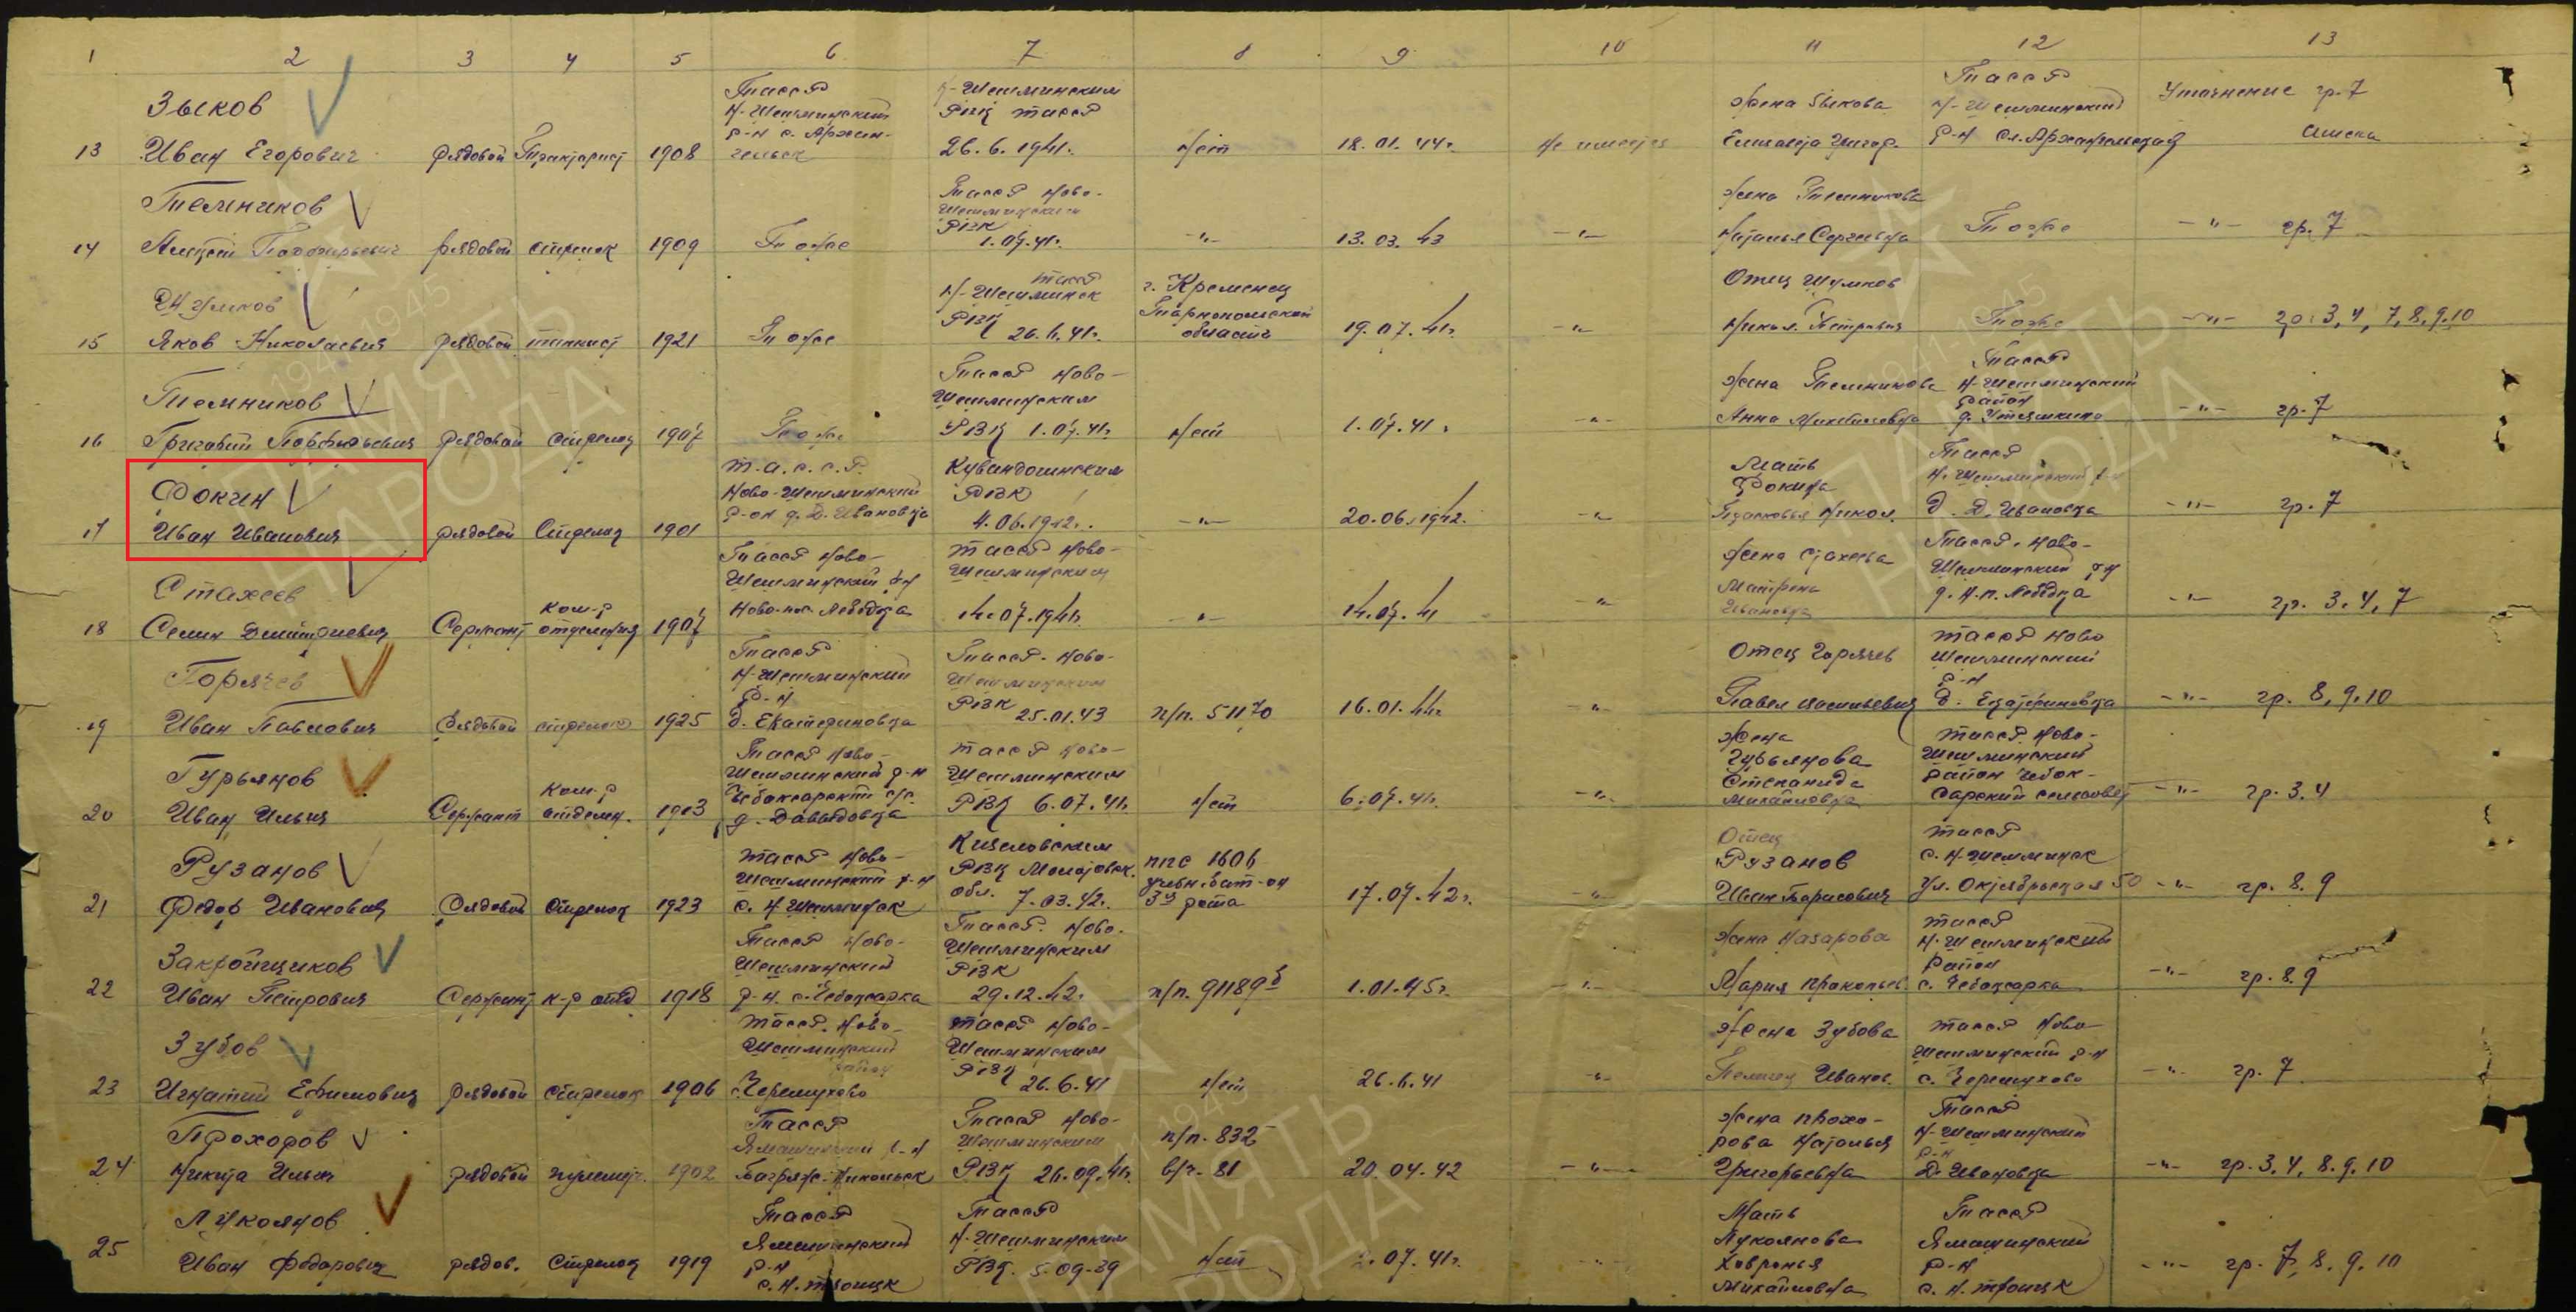 1 2 3 4 5 6 7 8 9 10 11 12 13
Зыков
Тасср
Н-Шешминский
р-н с. Архан-
гельск
Н-Шешминским
РВК Тасср
26.6.1941г.
13 Иван Егорович рядовой Тракторист 1908
нет 18.01.44г. Не имеется
жена Зыкова
Елизавета Григор.
Тасср
Н-Шешминский
р-н сл. Архангельская
Уточнение гр. 7
списка
Темников
Тасср Ново-
Шешминским
РВК
1.07.41г.
14 Алексей Порфирьевич рядовой стрелок 1909 Тоже
-"- 13.03.43 -"-
жена Темникова
Наталья Сергеевна
Тоже -"- гр. 7
Шумков
Тасср
Н-Шешминск
РВК 26.6.41г.
г. Кременец
Тарнопольской
область
15 Яков Николаевич рядовой танкист 1921 Тоже
19.07.41г. -"-
Отец Шумков
Никол. Петрович
Тоже -"- гр. 3,4,7,8,9.10
Темников
Тасср Ново-
Шешминским
РВК 1.07.41г.
16 Григорий Порфирьевич рядовой стрелок 1907 Тоже
нет 1.07.41г. -"-
жена Темникова
Анна Михайловна
Тасср
Н-Шешминский
район
д. Утяшкино
-"- гр. 7
Фокин
Т.а.с.с.р.
Ново-Шешминский
р-он д. Д. Ивановка
Кувандошинским
РВК
4.06.1942г.
17 Иван Иванович рядовой Стрелок 1901
-"- 20.06.1942. -"-
Мать
Фокина
Прасковья Никол.
Тасср
Н. Шешминский р-н
д. Д. Ивановка
-"- гр. 7
Стахеев
Тасср Ново-
Шешминский р-н
Ново-пос. Лебедка
Тасср Ново-
Шешминским
14.07.1941г.
18 Семен Дмитриевич Сержант ком-р отделения 1907
-"- 14.07.41 -"-
жена Стахеева
Матрена
Ивановна
Тасср. Ново-
Шешминский р-н
д. Н.п. Лебедка
-"- гр. 3.4,7
Горячев
Тасср
Н-Шешминский
р-н
д. Екатериновка
Тасср. Ново-
Шешминским
РВК
25.01.43
19 Иван Павлович Рядовой стрелок 1925
п/п. 51170 16.01.44г. -"-
Отец Горячев
Павел Васильевич
Тасср Ново
Шешминский
р-н
д. Екатериновка
-"- гр. 8,9.10
Гурьянов
Тасср Ново-
Шешминский р-н
Чебоксарский с/с.
д. Давыдовка
Тасср Ново-
Шешминским
РВК 6.07.41г.
20 Иван Ильич Сержант ком-р отделен. 1913
нет 6.07.41г. -"-
жена
Гурьянова
Степанида
Михайловна
Тасср. Ново-
Шешминский
район Чебок-
сарский сельсовет
-"- гр. 3.4
Рузанов
Тасср Ново-
Шешминский р-н
с. Н-Шешминск
Кизеловским
РВК Молотовск.
обл. 7.03.42г.
ппс 1606
учебн. бат-он
3я рота
21 Федор Иванович Рядовой Стрелок 1923
17.07.42г. -"-
Отец
Рузанов
Иван Борисович
Тасср
с. Н-Шешминск
ул. Октябрьская 50
-"- гр. 8.9
Закройщиков
Тасср Ново-
Шешминский
р-н. с. Чебоксарка
Тасср. Ново-
Шешминским
РВК
29.12.42г.
22 Иван Петрович Сержант к-р отд 1918
п/п. 91189б 1.01.45г. -"-
жена Назарова
Мария Прокопьев.
Тасср
Н-Шешминский
район
с. Чебоксарка
-"- гр. 8.9
Зубов
Тасср. Ново-
Шешминский
район
с. Черемухово
Тасср Ново-
Шешминским
РВК 26.6.41
23 Игнатий Ефимович рядовой Стрелок 1906
нет 26.6.41 -"-
жена Зубова
Пелагея Иванов.
Тасср Ново-
Шешминский р-н
с. Черемухово
-"- гр. 7
Прохоров
Тасср
Ямашинский р-н
Багряж-Никольск
Тасср Ново-
Шешминским
РВК 26.09.41г.
п/п. 832
в/ч-81
24 Никита Ильич рядовой пулемет. 1902
20.04.42 -"-
жена Прохо-
рова Наталья
Григорьевна
Тасср
Н-Шешминский
р-н
Д. Ивановка
-"- гр. 3.4.8.9.10
Лукоянов
Тасср
Ямашинский
р-н
с. Н. Троицк
Тасср
Н-Шешминским
РВК. 5-09-39
25 Иван Федорович рядов. Стрелок 1919
нет 07.41г. -"-
Мать
Лукоянова
Хавронья
Михайловна
Тасср
Ямашинский
р-н
с. Н. Троицк
-"- гр. 7, 8.9.10
1941-1945
ПАМЯТЬ
НАРОДА